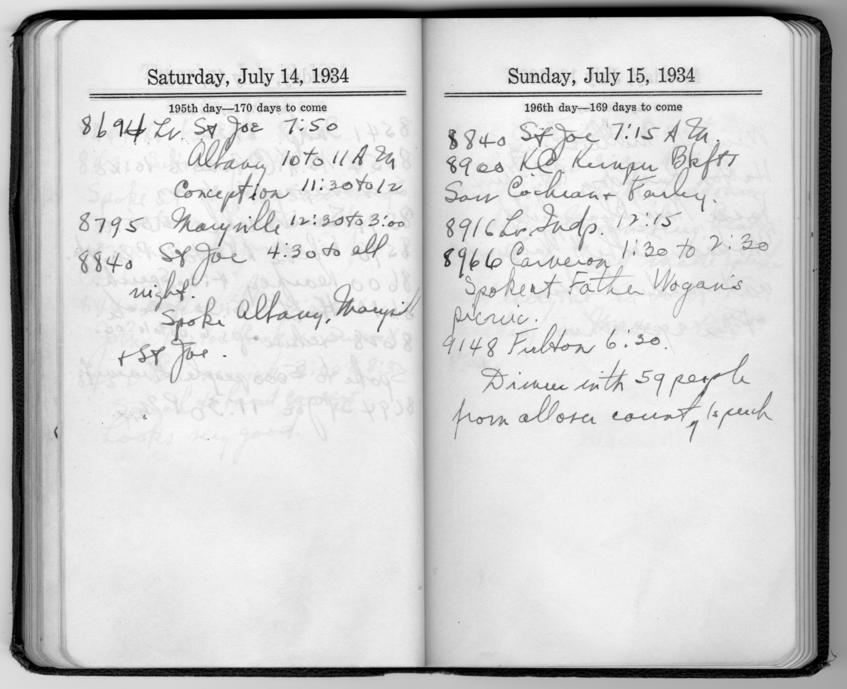 Saturday, July 14, 1934
195th day—170 days to come
8694 Lv. St Joe 7:50
Albany 10 to 11 A M
Conception 11:30 to 12
8795 Maryville 12:30 to 3:00
8840 St Joe 4:30 to all
night.
Spoke Albany, Maryvil
+ St Joe.
Looks very good.
Sunday, July 15, 1934
196th day—169 days to come
8840 St Joe 7:15 A M.
8900 K.C. Bkfst
Saw Cochran + Farley.
8916 Lv. Indp. 12:15
8966 Cameron 1:30 to 2:30
Spoke at Father Wogan's
picnic.
9148 Fulton 6:30.
Dinner with 59 people
from all over county 1 speech